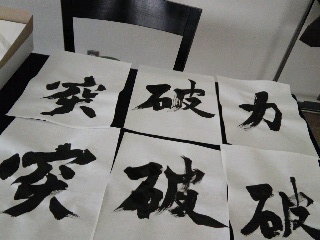 突破力
突破破